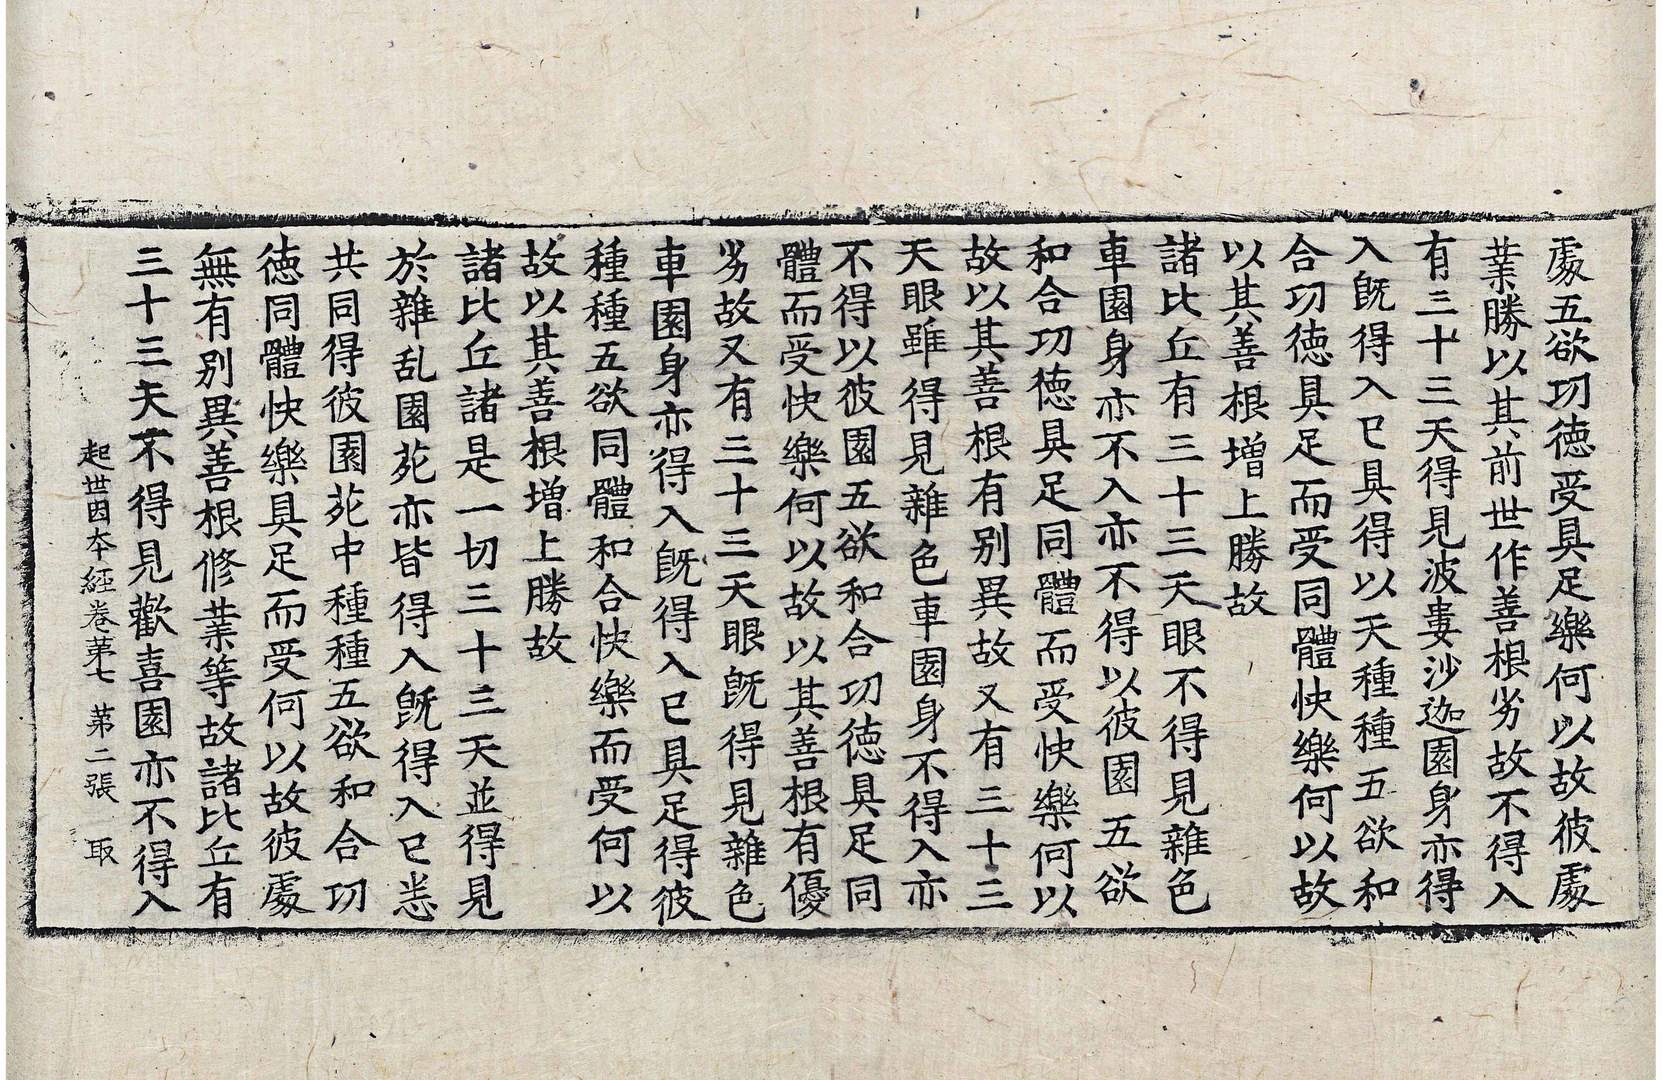 處五欲功德受具足樂何以故彼處
業勝以其前世作善根劣故不得入
有三十三天得見波婁沙迦園身亦得
入旣得入已具得以天種種五欲和
合功德具足而受同體快樂何以故
以其善根增上勝故
諸比丘有三十三天眼不得見雜色
車園身亦不入亦不得以彼園五欲
和合功德具足同體而受快樂何以
故以其善根有別異故又有三十三
天眼雖得見雜色車園身不得入亦
不得以彼園五欲和合功德具足同
體而受快樂何以故以其善根有優
劣故又有三十三天眼旣得見雜色
車園身亦得入旣得入已具足得彼
種種五欲同體和合快樂而受何以
故以其善根增上勝故
諸比丘諸是一切三十三天並得見
於雜乱園苑亦皆得入旣得入已恙
共同得彼園苑中種種五欲和合功
德同體快樂具足而受何以故彼處
無有別異善根修業等故諸比丘有
三十三天不得見歡喜園亦不得入
起世因本經卷第七 第二張 取